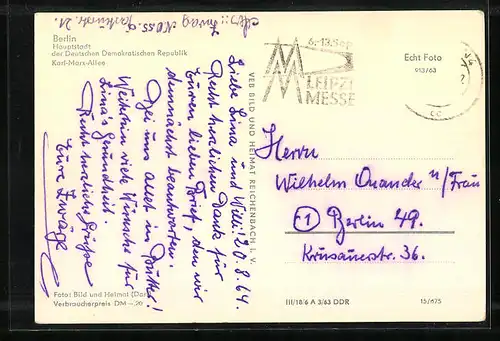 Berlin
Hauptstadt
der Deutschen Demokratischen Republik
Karl-Marx-Allee
Liebe Lina und Willi! 20.8.64.
Recht herzlichen Dank für
Euren lieben Brief, den wir
demnächst beantworten.
Bei uns alles in Butter!
Weiterhin viele Wünsche für
Lina's Gesundheit.
Recht herzliche Grüsse
Eure
Foto: Bild und Heimat
Verbraucherpreis DM -,20
VEB BILD UND HEIMAT REICHENBACH I. V.
6.-13.Sep
MM
LEIPZI
MESSE
Echt Foto
913/63
Herrn
Wilhelm u/Frau
1 Berlin 49.
36.
III/18/6 A 3/63 DDR
15/675